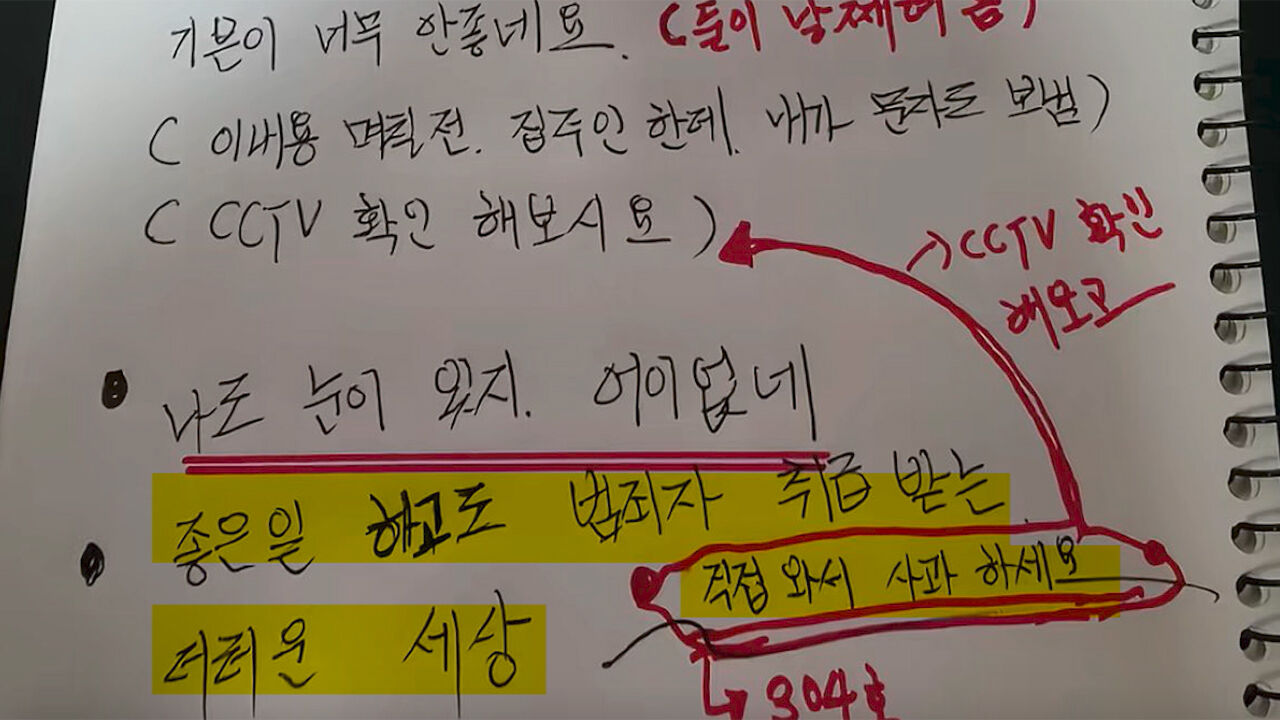 기분이 너무 안좋네요. (둘이 날째려 봄)
(이내용 며칠전. 집주인 한테. 내가 문자도 보냄)
(CCTV 확인 해보시요)
→CCTV 확인
해보고
나도 눈이 있지. 어이없네
좋은일 해고도 범죄자 취급 받는
직접 와서 사과 하세요
더러운 세상
304호